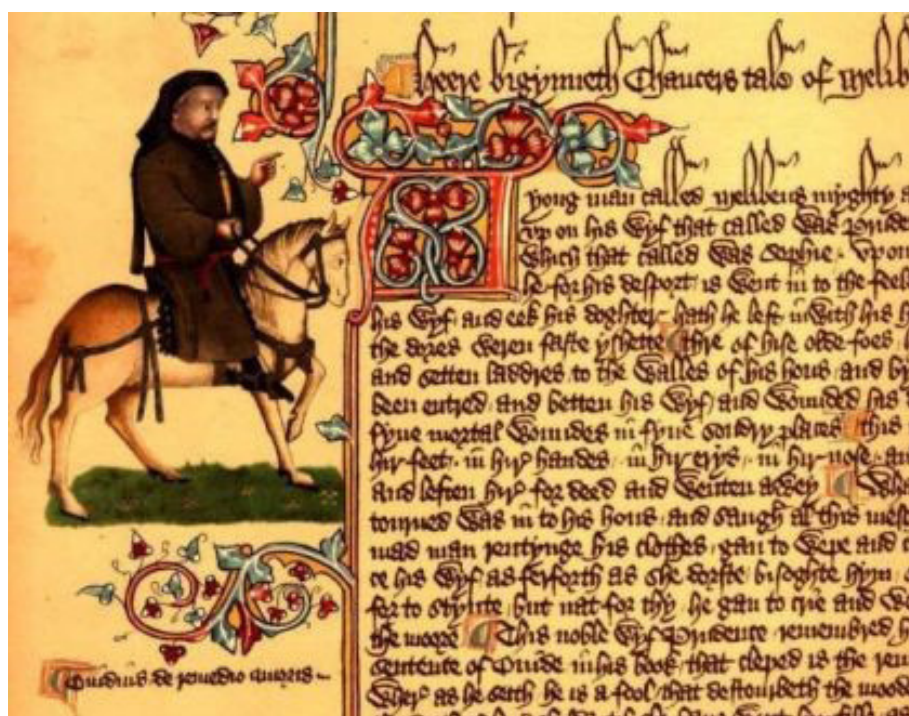 Heere bigynneth Chaucers tale of Melib
yong man called Melibeus myghty a
vp on his wyf that called was Prude
which that called was Sophie. Vpon
he for his desport is went in to the feel
his wyf and eek his doghter hath he left inwith his h
the dores weren faste yshette thre of hise olde foes
and setten laddres to the walles of his hous and by
been entred and betten his wyf and wounded his d
fyue mortal woundes in fyue sondry places this
hir feet. in hir handes. in hir erys. in hir nose. an
and leften hir for deed and wenten awey Wha
tourned was in to his hous and saugh al this mesc
mad man rentynge his clothes gan to wepe and c
ce his wyf as ferforth as she dorste bisoghte hym
for to stynte but nat for thy he gan to crie and we
the moore This noble wyf Prudence remembred h
sentence of Ouide in his book that cleped is the rem
wher as he seith he is a fool that destourbeth the mood
Ouidius de remedio amoris